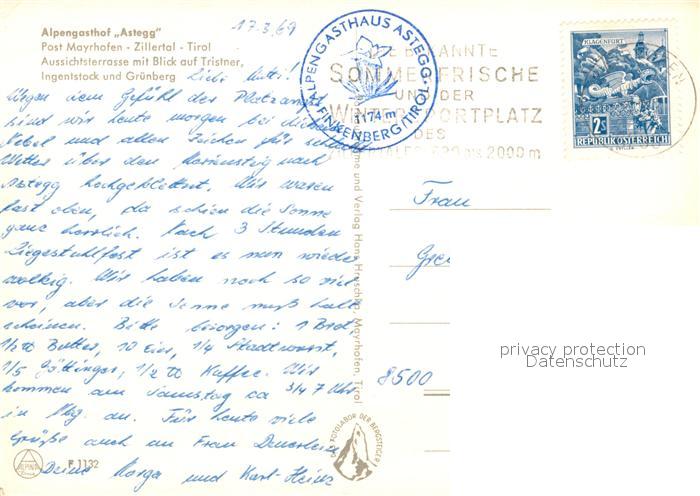 Alpengasthof „Astegg"
Post Mayrhofen - Zillertal - Tirol
Aussichtsterrasse mit Blick auf Tristner,
Ingentstock und Grünberg
17.3.69
ALPENGASTHAUS ASTEGG
1174 m
FINKENBERG (TIROL)
SOMMERFRISCHE
UND DER
WINTERSPORTPLATZ
DES
630 bis 2000 m
KLAGENFURT
2 S
REPUBLIK ÖSTERREICH
Liebe Mutti!
Wegen dem Gefühl der Platzangst
sind wir heute morgen bei
Nebel und allen Zeichen für
Wetter über den Mariensteig nach
Astegg hochgeklettert. Wir waren
fast oben, da schien die Sonne
ganz herrlich. Nach 3 Stunden
Liegestuhlfest ist es nun wieder
wolkig. Wir haben noch so viel
vor, aber die Sonne muß halt
scheinen. Bitte besorgen: 1 Brot
1/2 ℔ Butter, 10 Eier, 1/4 Stadtwurst,
1/5 Göttinger, 1/2 ℔ Kaffee. Wir
kommen am Samstag ca 3/4 7 Uhr
in Nbg. an. Für heute viele
Grüße auch an Frau
Deine Marga und Karl-Heinz
Frau
8500
und Verlag Hans Hruschka, Mayrhofen, Tirol
FOTOLABOR DER BERGSTEIGER
ALPINA
F 1132
privacy protection
Datenschutz